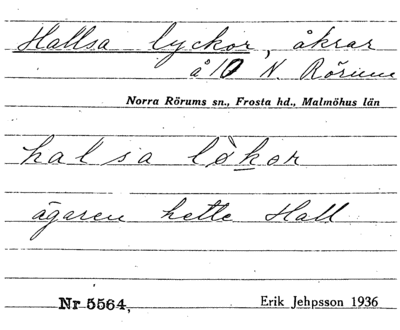 Hallsa lyckor, åkrar
å 10 N. Rörum
Norra Rörums sn., Frosta hd., Malmöhus län
halsa lòkor
ägaren hette Hall
Nr 5564,
Erik Jehpsson 1936